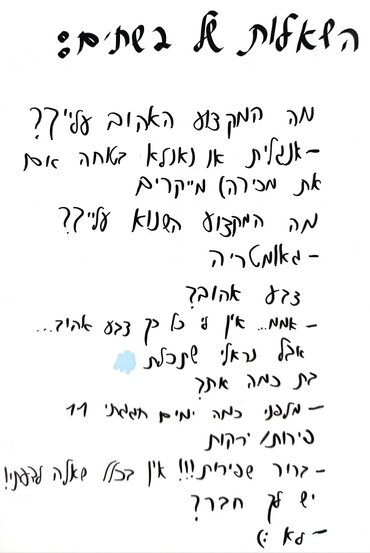 השאלות של בשתים:
מה המקצוע האהוב עלייך??
-אנגלית או נאנלא בטחה אם
את מכירה) מייקרים
מה המקצוע השנוא עלייך??
-גאומטריה
צבע אהוב?
-אממ... אין לי כל כך צבע אהוב...
אבל נראלי שתכלת
בת כמה את?
-מלפני כמה ימים חגגתי 11
פירות/ ירקות
-ברור שפירות!!! אין בכלל שאלה לדעתי!!
יש לך חבר?
-לא :)